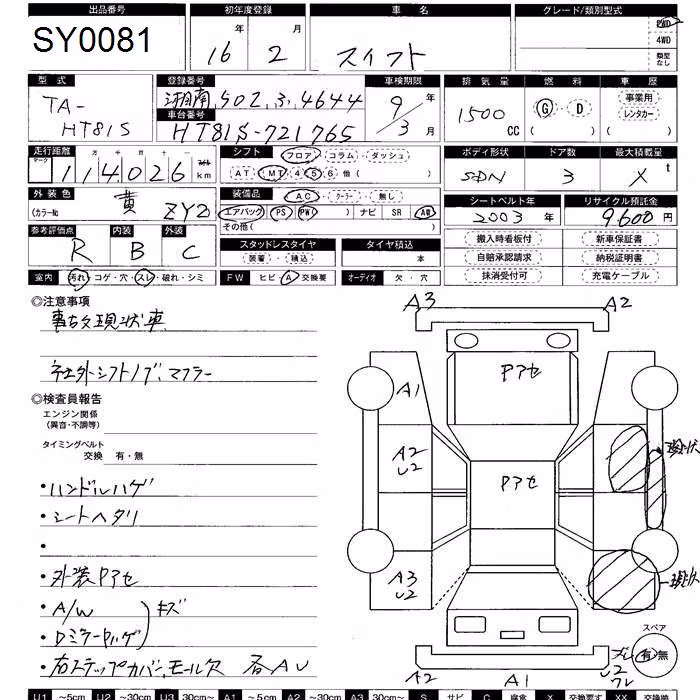 出品番号 初年度登録 車名 グレード/類別型式
SY0081 16年 2月 スイフト 2WD 4WD 類型なし
型式 登録番号 車検期限 排気量 燃料 車歴
TA-HT81S 湘南 502 さ 4644 9年 3月 1500CC G・D ( ) 事業用 レンタカー ( )
車台番号
HT81S-721765
走行距離 シフト フロア・コラム・ダッシュ ボディ形状 ドア数 最大積載量
マーク 十万千百十 114026 km AT・MT 4・5・6 他( ) SDN 3 X t
外装色 装備品 AC・クーラー・無し シートベルト年 リサイクル預託金
(カラーNo 黄 ZYZ エアバッグ( ) PS PW( ) ナビ SR AW 2003年 9600円
その他( )
参考評価点 内装 外装 スタッドレスタイヤ タイヤ積込 搬入時看板付 新車保証書
R B C 装着・積込 本 自賠承認請求 納税証明書
室内 汚れ・コゲ・穴・スレ・破れ・シミ FW ヒビ・A・交換要 オーディオ 欠・穴 抹消受付可 充電ケーブル
◎注意事項
事故現状車
社外シフトノブ、マフラー
◎検査員報告
エンジン関係
(異音・不調等)
タイミングベルト
交換 有・無
・ハンドルハゲ
・シートヘタリ
・
・外装Pアセ
・A/W キズ
・Dミラー
・右ステップカバー、モール欠 各AU
A3 A2
Pアセ
A1
A2
U2
現状
Pアセ
A3
U2
現状
スペア
有・無
A2 A1 U2
U1 ~5cm U2 ~30cm U3 30cm~ A1 ~5cm A2 ~30cm A3 30cm~ S サビ C 腐食 X 交換要す XX 交換跡